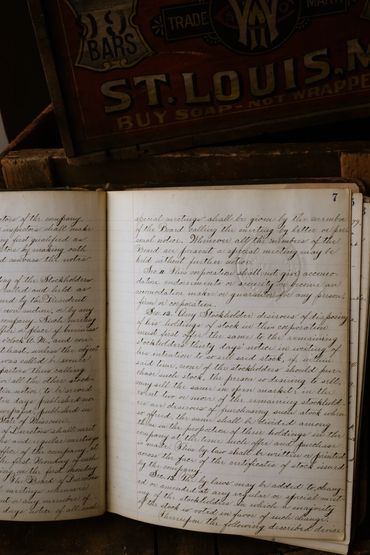 BARS
TRADE
MARK
ST. LOUIS, M
BUY SOAP-NOT WRAPPE
ctors of the company
inspectors shall make
ing first qualified as
ctors by making oath
and canvass the votes
ting of the Stockholders
and held as
ed by the President
own motion, or by any
company. Such meet-
office or place of business
o'clock A.M., and con-
at least, unless the object
was called be sooner
parties thus calling
all the other stock-
ten notice to be served
days published not
newspaper published in
State of Missouri.
of Directors shall meet
and regular meetings
office of the company
the first Monday
ing on the first Monday
The Board of Directors
meetings whenever
or any member of
days notice of all such
7
special meetings shall be given by the member
of the Board calling the meeting by letter or per-
sonal notice. Whenever all the members of the
Board are present a special meeting may be
held without further notice.
Sec. 11. This corporation shall not give accomo-
dation endorsements or security or become an
accomodation maker or guarantor for any person,
firm or corporation.
Sec. 12. Any Stockholder desirous of disposing
of his holdings of stock in this corporation
must first offer the same to the remaining
stockholders thirty days notice in writing of
his intention to so sell said stock, if, within
said time, none of the stockholders should pur-
chase such stock, the person so desiring to sell,
may sell the same in open market; in the
event two or more of the remaining stockhold-
ers are desirous of purchasing such stock when
so offered, the same shall be divided among
them in the proportion of their holdings in the
company at the time such offer and purchase
is made. This by-law shall be written or printed
across the face of the certificates of stock issued
by the company.
Sec. 13. The by-laws may be added to, chang-
ed or amended at any regular or special meet-
ing of the stockholders in which a majority
of the stock is voted in favor of such change.
Whereupon the following described